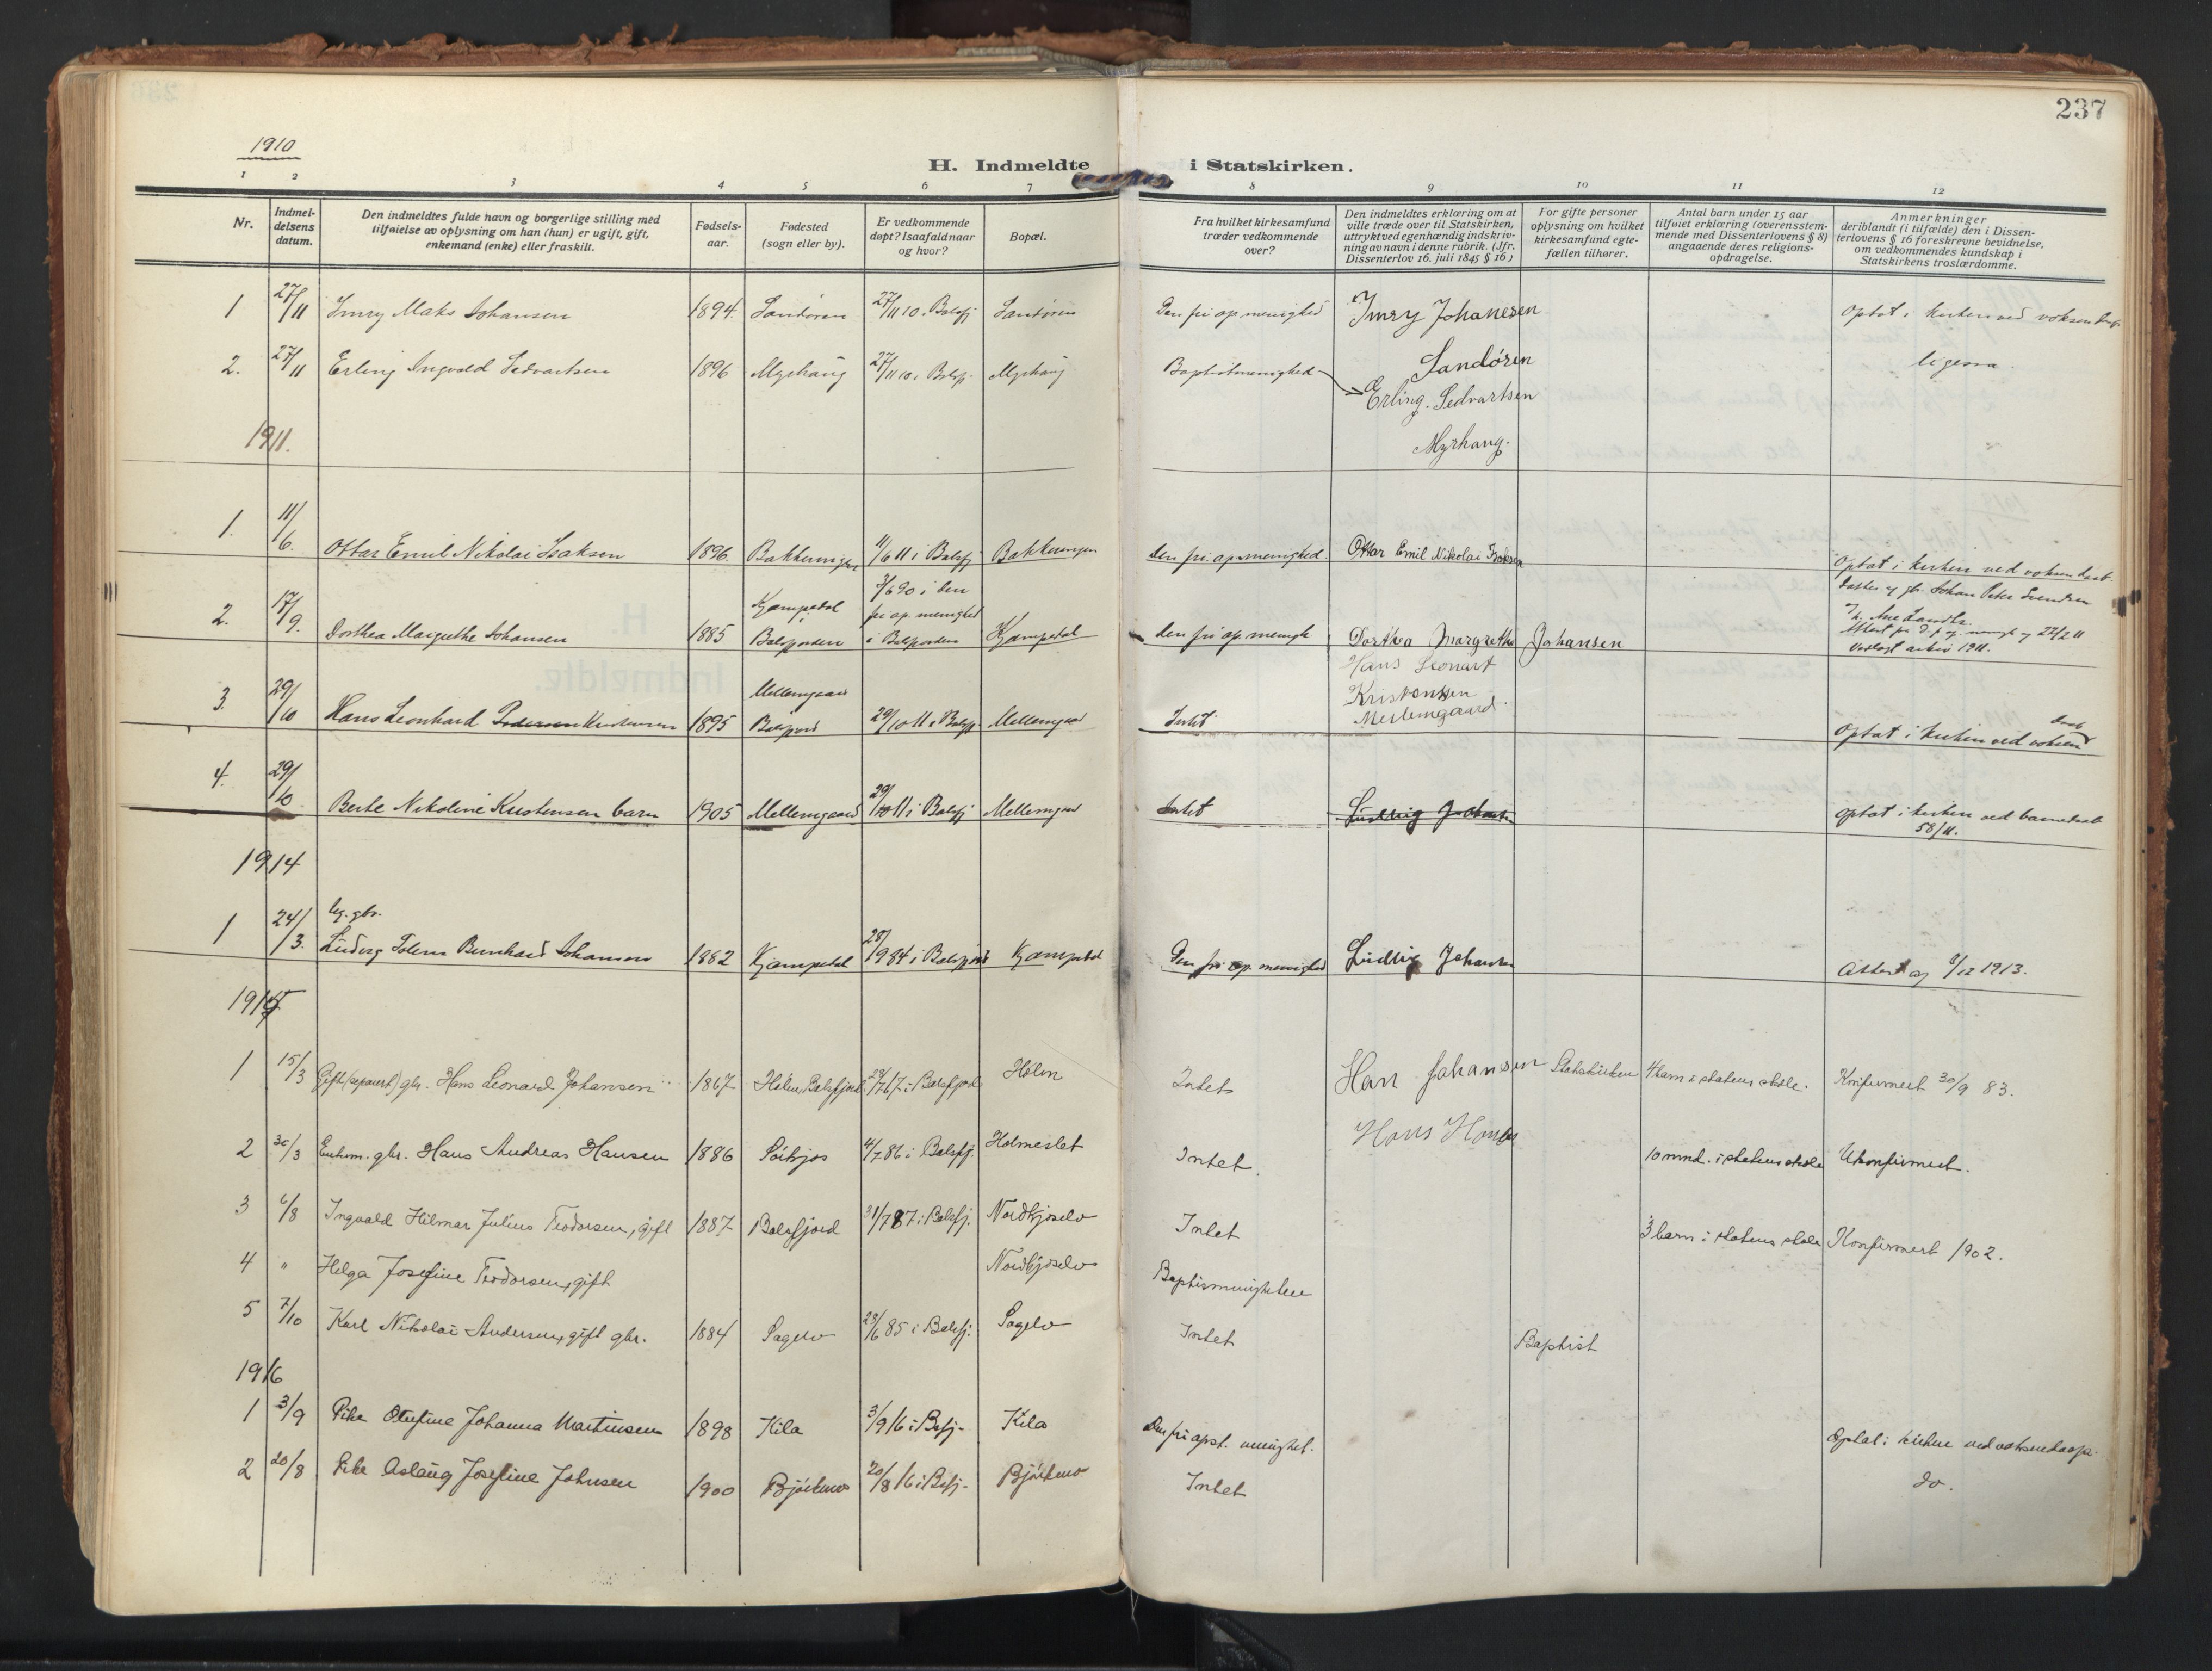 237
1910
H. Indmeldte i Statskirken.
1 2 3 4 5 6 7 8 9 10 11 12
Nr.
Indmel-
delsens
datum.
Den indmeldtes fulde navn og borgerlige stilling med
tilføielse av oplysning om han (hun) er ugift, gift,
enkemand (enke) eller fraskilt.
Fødsels-
aar.
Fødested
(sogn eller by).
Er vedkommende
døpt? Isaafald naar
og hvor?
Bopæl.
Fra hvilket kirkesamfund
træder vedkommende
over?
Den indmeldtes erklæring om at
ville træde over til Statskirken,
uttrykt ved egenhændig indskriv-
ning av navn i denne rubrik. (Jfr.
Dissenterlov 16. juli 1845 § 16.)
For gifte personer
oplysning om hvilket
kirkesamfund egte-
fællen tilhører.
Antal barn under 15 aar
tilføiet erklæring (overensstem-
mende med Dissenterlovens § 8)
angaaende deres religions-
opdragelse.
Anmerkninger
deriblandt (i tilfælde) den i Dissen-
terlovens § 16 foreskrevne bevidnelse,
om vedkommendes kundskap i
Statskirkens troslærdomme.
1 27/11 Imry Maks Johansen 1894. Sandøren 27/11 10. Balsfj Sandøren Den fri ap. menighed Imry Johanesen Optat i kirken ved voksendaab
Sandøren
2. 27/11 Erling Ingvald Sedvartsen 1896 Myrhaug 27/11 10 i Balsfj. Myrhaug Baptistmenighed Erling. Sedvartsen ligesaa.
Myrhaug.
1911.
1. 11/6. Ottar Emil Nikolai Isaksen 1896. Bakkeungen 11/6 11 i Balsfj Bakkeungen Den fri. ap. menighed. Ottar Emil Nikolai Isaksen Optat i kirken ved voksendaab.
2. 17/9. Dorthea Margrethe Johansen 1885 Kjæmpedal i Balsfjorden 3/6 90 i den fri ap. menighed i Balsfjorden Kjæmpedal Den fri ap. menigh Dorthea Margrethe Johansen Datter af gbr. Johan Peter Svendsen
27/2 11
arkiv 1911.
3. 29/10 Hans Leonhard Pedersen Kristensen 1895 Mellemgaard Balsfjord 29/10 11 i Balsfj. Mellemgaard Intet Hans Leonart Kristensen Mellemgaard. Optat i kirken ved voksendaab
4. 29/10 Berte Nikoline Kristensen barn 1905 Mellemgaard 29/10 11 i Balsfj Mellemgaard Intet Ludvig Johansen optat i kirken ved barnedaab
58/11.
1914
1 24/3. ug. gbr. Ludvig Johansen 1882 Kjæmpedal 28/9 84 i Balsfjord Kjæmpedal Den fri ap. menighed Ludvig Johansen Attest af 8/12 1913.
1915
1 15/3 Gift (separert) gbr. Hans Leonard Johansen 1867 Holm, Balsfjord 28/7 67 i Balsfjord Holm Intet Hans Johansen Statskirken 4 barn i statens skole. Konfirmert 30/9 83.
2 30/3 Enkem. gbr. Hans Andreas Hansen 1886 4/7 86 i Balsfj. Holmeslet Intet. Hans Hansen 10 mnd. i statens skole Ukonfirmert.
3 6/8 Ingvald Hilmar Julius Teodorsen, gift 1887 Balsfjord 31/7 87 i Balsfj. Nordkjoselv Intet 3 barn i statens skole Konfirmert 1902.
4 " Helga Josefine Teodorsen, gift Nordkjoselv Baptismenigheten
5 7/10 Karl Nikolai Andersen, gift gbr. 1884 Sagelv 28/6 85 i Balsfj. Sagelv Intet Baptist
1916
1 3/9 Pike Olufine Johanna Martinsen 1898 Kila 3/9 16 i Bsfj. Kila Den fri apst. menighet. Optat i kirken ved voksendaap.
2 20/8 Pike Aslaug Josefine Johnsen 1900 Bjørkmo 20/8 16 i Bsfj. Bjørkmo Intet do.